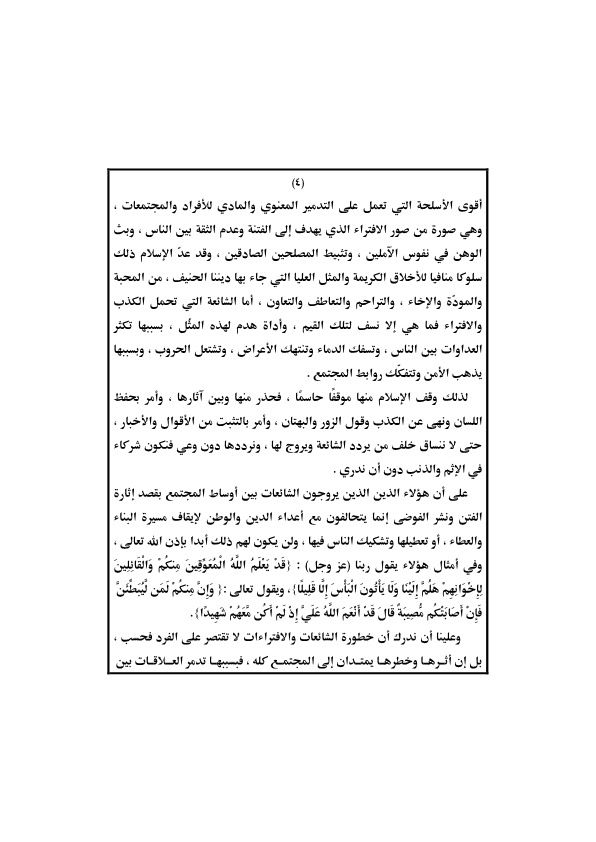 (٤)
أقوى الأسلحة التي تعمل على التدمير المعنوي والمادي للأفراد والمجتمعات ،
وهي صورة من صور الافتراء الذي يهدف إلى الفتنة وعدم الثقة بين الناس ، وبث
الوهن في نفوس الآملين ، وتثبيط المصلحين الصادقين ، وقد عدّ الإسلام ذلك
سلوكا منافيا للأخلاق الكريمة والمثل العليا التي جاء بها ديننا الحنيف ، من المحبة
والمودّة والإخاء ، والتراحم والتعاطف والتعاون ، أما الشائعة التي تحمل الكذب
والافتراء فما هي إلا نسف لتلك القيم ، وأداة هدم لهذه المثُل ، بسببها تكثر
العداوات بين الناس ، وتسفك الدماء وتنتهك الأعراض ، وتشتعل الحروب ، وبسببها
يذهب الأمن وتتفكّك روابط المجتمع .
لذلك وقف الإسلام منها موقفًا حاسمًا ، فحذر منها وبين آثارها ، وأمر بحفظ
اللسان ونهى عن الكذب وقول الزور والبهتان ، وأمر بالتثبت من الأقوال والأخبار ،
حتى لا ننساق خلف من يردد الشائعة ويروج لها ، ونرددها دون وعي فنكون شركاء
في الإثم والذنب دون أن ندري .
على أن هؤلاء الذين الذين يروجون الشائعات بين أوساط المجتمع بقصد إثارة
الفتن ونشر الفوضى إنما يتحالفون مع أعداء الدين والوطن لإيقاف مسيرة البناء
والعطاء ، أو تعطيلها وتشكيك الناس فيها ، ولن يكون لهم ذلك أبدا بإذن الله تعالى ،
وفي أمثال هؤلاء يقول ربنا (عز وجل) : {قَدْ يَعْلَمُ اللَّهُ الْمُعَوِّقِينَ مِنكُمْ وَالْقَائِلِينَ
لِإِخْوَانِهِمْ هَلُمَّ إِلَيْنَا وَلَا يَأْتُونَ الْبَأْسَ إِلَّا قَلِيلًا}، ويقول تعالى :{ وَإِنَّ مِنكُمْ لَمَن لَّيُبَطِّئَنَّ
فَإِنْ أَصَابَتْكُم مُّصِيبَةٌ قَالَ قَدْ أَنْعَمَ اللَّهُ عَلَيَّ إِذْ لَمْ أَكُن مَّعَهُمْ شَهِيدًا}.
وعلينا أن ندرك أن خطورة الشائعات والافتراءات لا تقتصر على الفرد فحسب ،
بل إن أثـرهـا وخطرهـا يمتـدان إلى المجتمـع كله ، فبسببهـا تدمر العـلاقـات بين